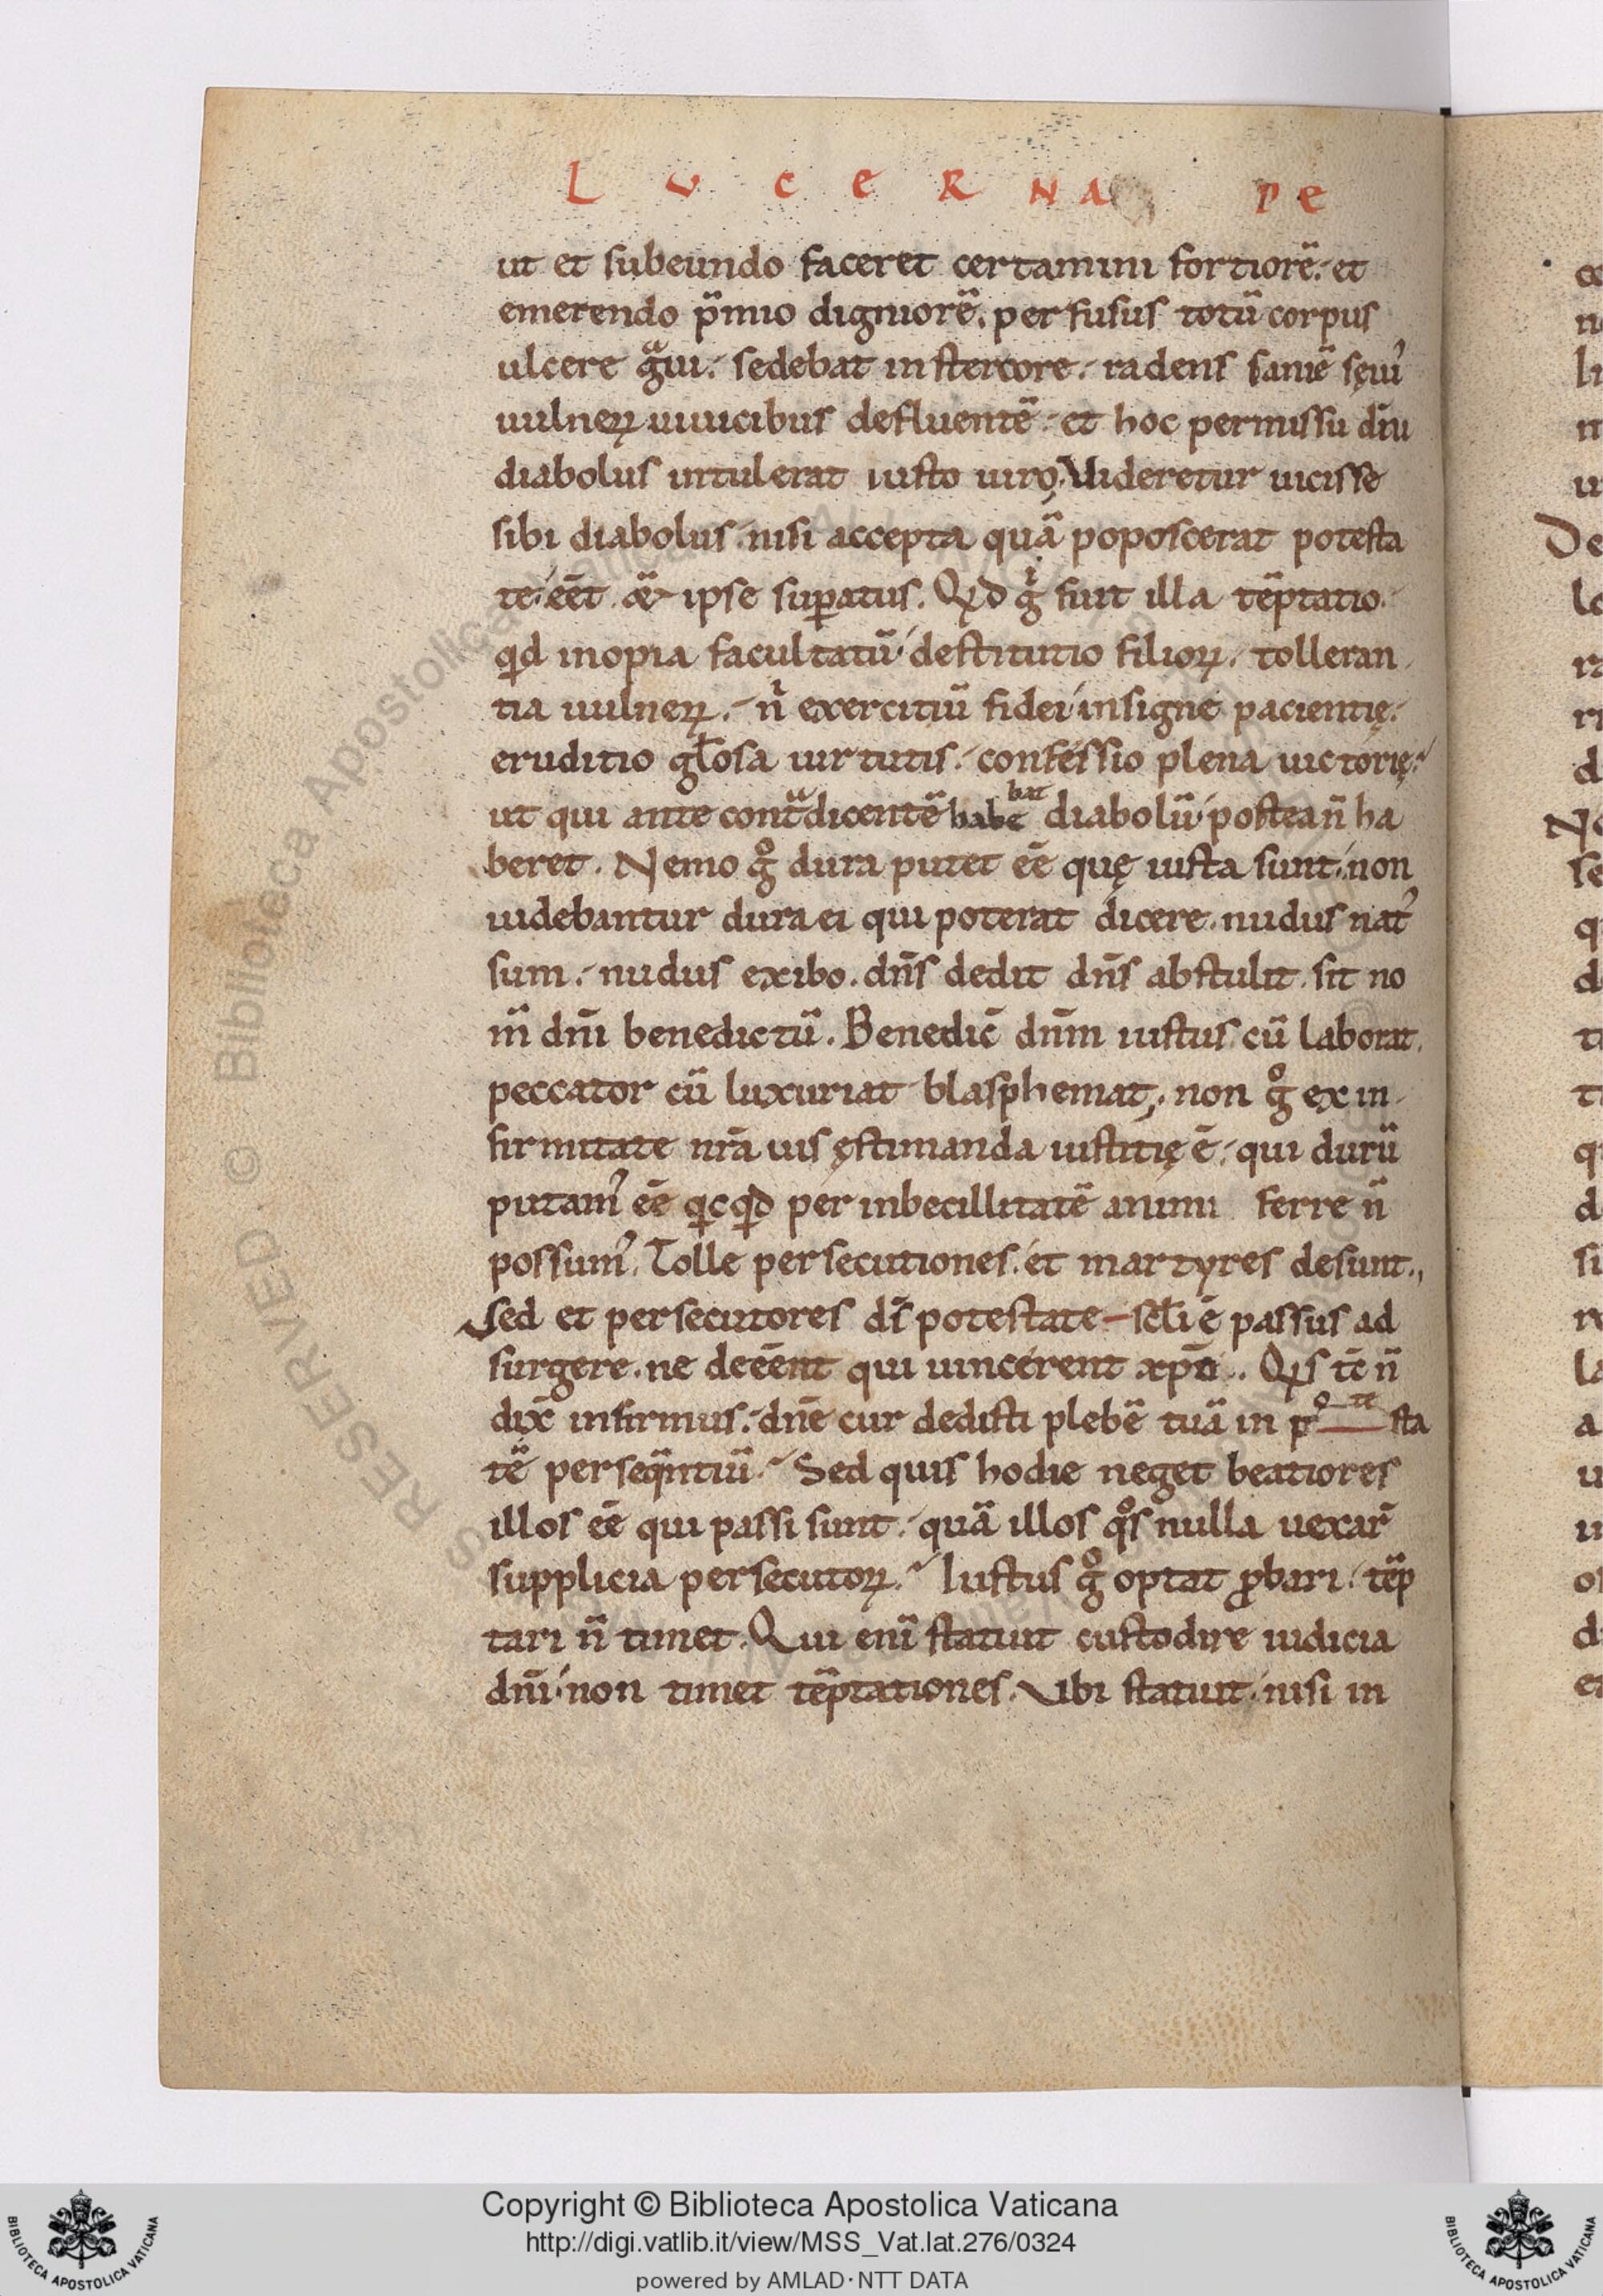 L V C E R N A P E
ut et subeundo faceret certamini fortiorē· et
emerendo p̄mio digniorē· perfusus totū corpus
ulcere gͣui· sedebat in stercore· radens saniē sęui᾽
uulneꝝ uiuicibus defluentē· et hoc permissu diu̅
diabolus intulerat iusto uiro· Videretur uicisse
sibi diabolus· nisi accepta quā poposcerat potesta
te· ee̅t ipse suꝑatus. Qd gͥ fuit illa te̅ptatio·
qd inopia facultatū· destitutio filioꝝ· tolleran
tia uulneꝝ· nͥ exercitiū fidei· insigne pacientię·
eruditio gl̅osa uirtutis· confessio plena uictorię·
ut qui ante contͣdicentē habebat diabolū· postea n̅ ha
beret. Nemo gͦ dura putet ee̅ quę iusta sunt· non
uidebantur dura ei qui poterat dicere· nudus nat᾽
sum· nudus exibo. dn̅s dedit dn̅s abstulit· sit no
m̅ dn̅i benedictū. Benedic̅ dn̅m iustus cū laborat·
peccator cū luxuriat blasphemat· non gͦ ex in
firmitate nr̅a uis ęstimanda iustitię ē· qui durū
putam᾽ ee̅ qcqd per inbecillitatē animi ferre n̅
possum᾽. Tolle persecutiones· et martyres desunt·
Sed et persecutores di̅ potestate scl̅i ē passus ad
surgere· ne dee̅ent qui uincerent xp̅o. Qs tc̅ n̅
dix̅ infirmus· dn̅e cur dedisti plebē tuā in pͦte sta
tē perseq̅ntiū· Sed quis hodie neget beatiores
illos ee̅ qui passi sunt· quā illos qͦs nulla uexar̅
supplicia persecutoꝝ· Iustus gͦ optat ꝓbari· te̅p
tari n̅ timet. Qui eni̅ statuit custodire iudicia
dn̅i· non timet te̅ptationes. Vbi statuit· nisi in
Copyright © Biblioteca Apostolica Vaticana
http://digi.vatlib.it/view/MSS_Vat.lat.276/0324
powered by AMLAD·NTT DATA